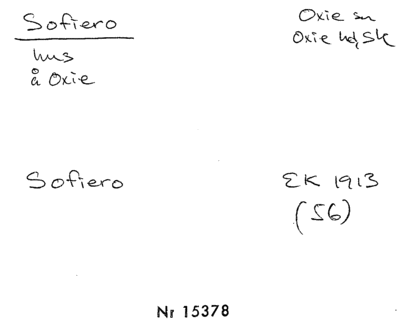 Sofiero
Oxie sn
hus
Oxie hd, Sk
å Oxie
Sofiero
EK 1913
(56)
Nr 15378